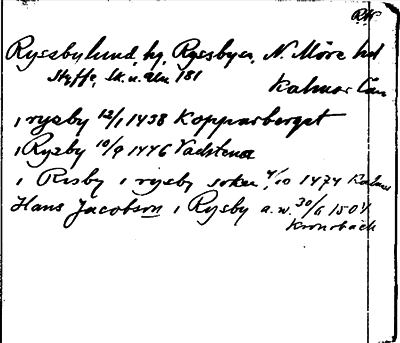 RW
Ryssbylund, hg, Ryssby sn, N. Möre hd
Styffe, Sk. u. Un. 181
Kalmar län
i rysby 12/1 1438 Kopparberget
i Rysby 10/9 1446 Vadstena
i Risby i rysby soken 4/10 1474 Kalmar
Hans Jacobson i Rysby a. w. 30/6 1504
Kronobäck